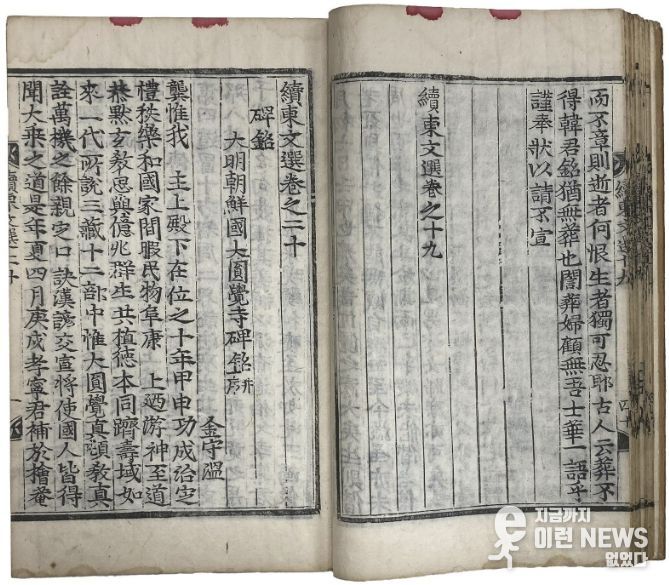 而不章則逝者何恨生者獨可忍耶古人云葬不
得韓君銘猶無葬也闇葬婦顧無吾士華一語乎
謹奉狀以請不宣
續東文選卷之十九
續東文選卷之二十
碑銘
大明朝鮮國大圓覺寺碑銘并序
金守溫
龔惟我 主上殿下在位之十年甲申功成治定
禮秩樂和國家閒暇民物阜康 上迺游神至道
恭默玄教思與億兆群生共植德本同躋壽域如
來一代所說三藏十二部中惟大圓覺真頓教真
詮萬機之餘親定口訣漢諺交宣將使國人皆得
聞大乘之道是年夏四月庚戌孝寧君補於檜菴
續東文選二十
지금까지
이런 NEWS
없었다